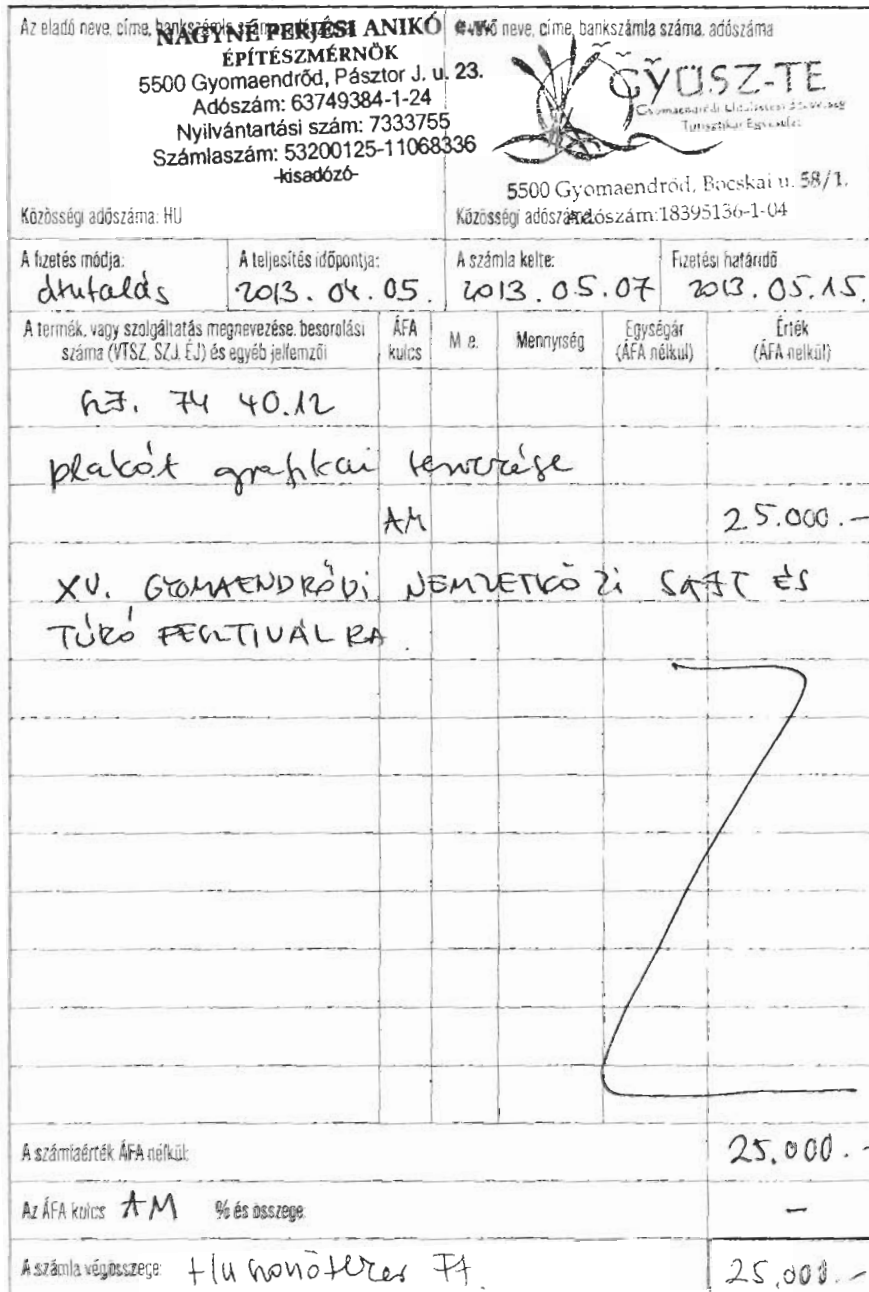 Az eladó neve, címe, bankszámla száma, adószáma
NAGYNÉ PERJÉSI ANIKÓ
ÉPÍTÉSZMÉRNÖK
5500 Gyomaendrőd, Pásztor J. u. 23.
Adószám: 63749384-1-24
Nyilvántartási szám: 7333755
Számlaszám: 53200125-11068336
-kisadózó-
Közösségi adószáma: HU
A vevő neve, címe, bankszámla száma, adószáma
GYÜSZ-TE
Turisztikai Egyesület
5500 Gyomaendrőd, Bocskai u. 58/1.
Közösségi adószáma:
Adószám:18395136-1-04
A fizetés módja: A teljesítés időpontja: A számla kelte: Fizetési határidő
átutalás 2013. 04. 05. 2013. 05. 07 2013. 05. 15.
A termék, vagy szolgáltatás megnevezése, besorolási száma (VTSZ, SZJ, ÉJ) és egyéb jellemzői ÁFA kulcs M.e. Mennyiség Egységár (ÁFA nélkül) Érték (ÁFA nélkül)
74 40.12
plakát grafikai tervezése
AM 25.000.-
XV. GYOMAENDRŐDI NEMZETKÖZI SAJT ÉS
TÚRÓ FESZTIVÁLRA
A számlaérték ÁFA nélkül: 25.000.-
Az ÁFA kulcs AM % és összege: –
A számla végösszege: Huszonötezer Ft 25.000.-